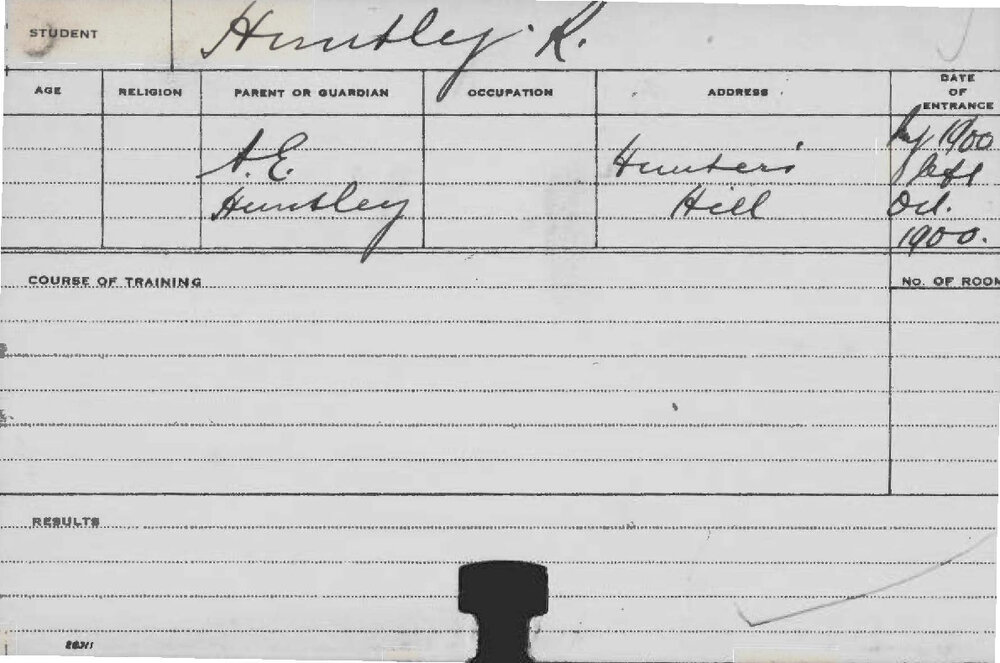 STUDENT Huntley R.
AGE RELIGION PARENT OR GUARDIAN OCCUPATION ADDRESS DATE OF ENTRANCE
A.E. Hunter's 1900
Huntley Hill left
Oct.
1900.
COURSE OF TRAINING No. OF ROOM
RESULTS